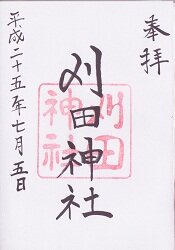 奉拝
刈田神社
刈田
神社
平成二十五年七月五日